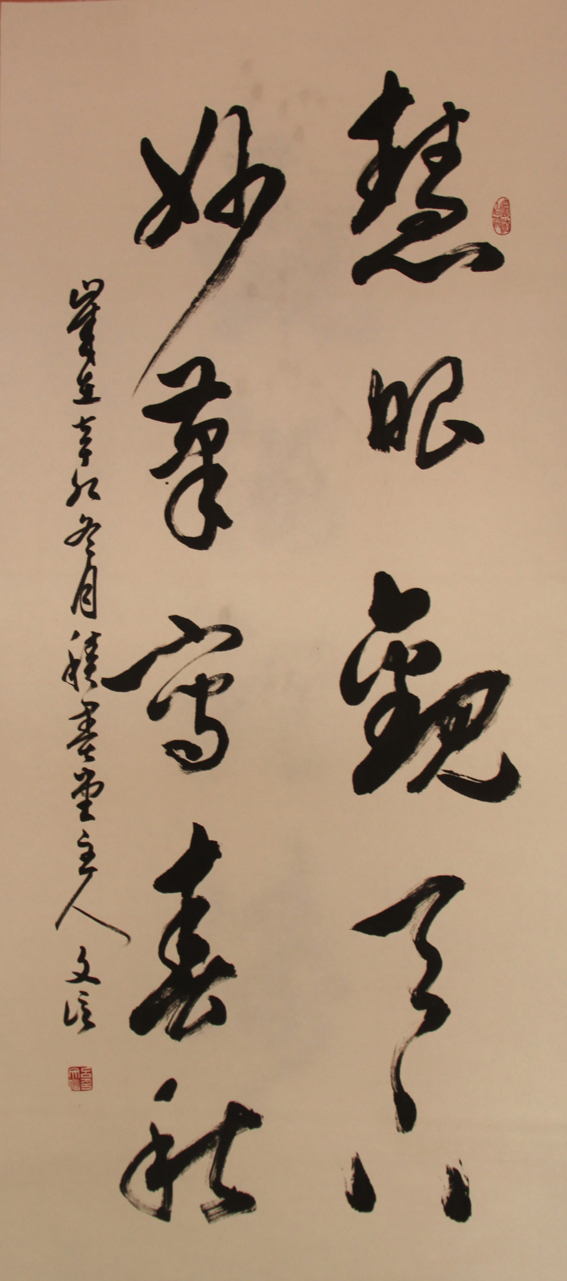 慧眼觀天下
妙筆寫春秋
歲在辛卯冬月積書堂主人文信